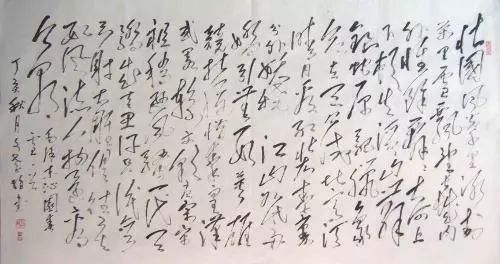 北國风光千里冰封
万里雪飘望长城内
外惟余莽莽大河上
下顿失滔滔山舞
银蛇原驰蜡象
欲与天公试比高须
晴日看红装素裹
分外妖娆江山如此多
娇引无数英雄
竞折腰惜秦皇汉
武略输文采唐宗宋
祖稍逊风骚一代天
骄成吉思汗只识弯
弓射大雕俱往矣
数风流人物还看
今朝
毛泽东沁園春
雪
丁亥秋月
书